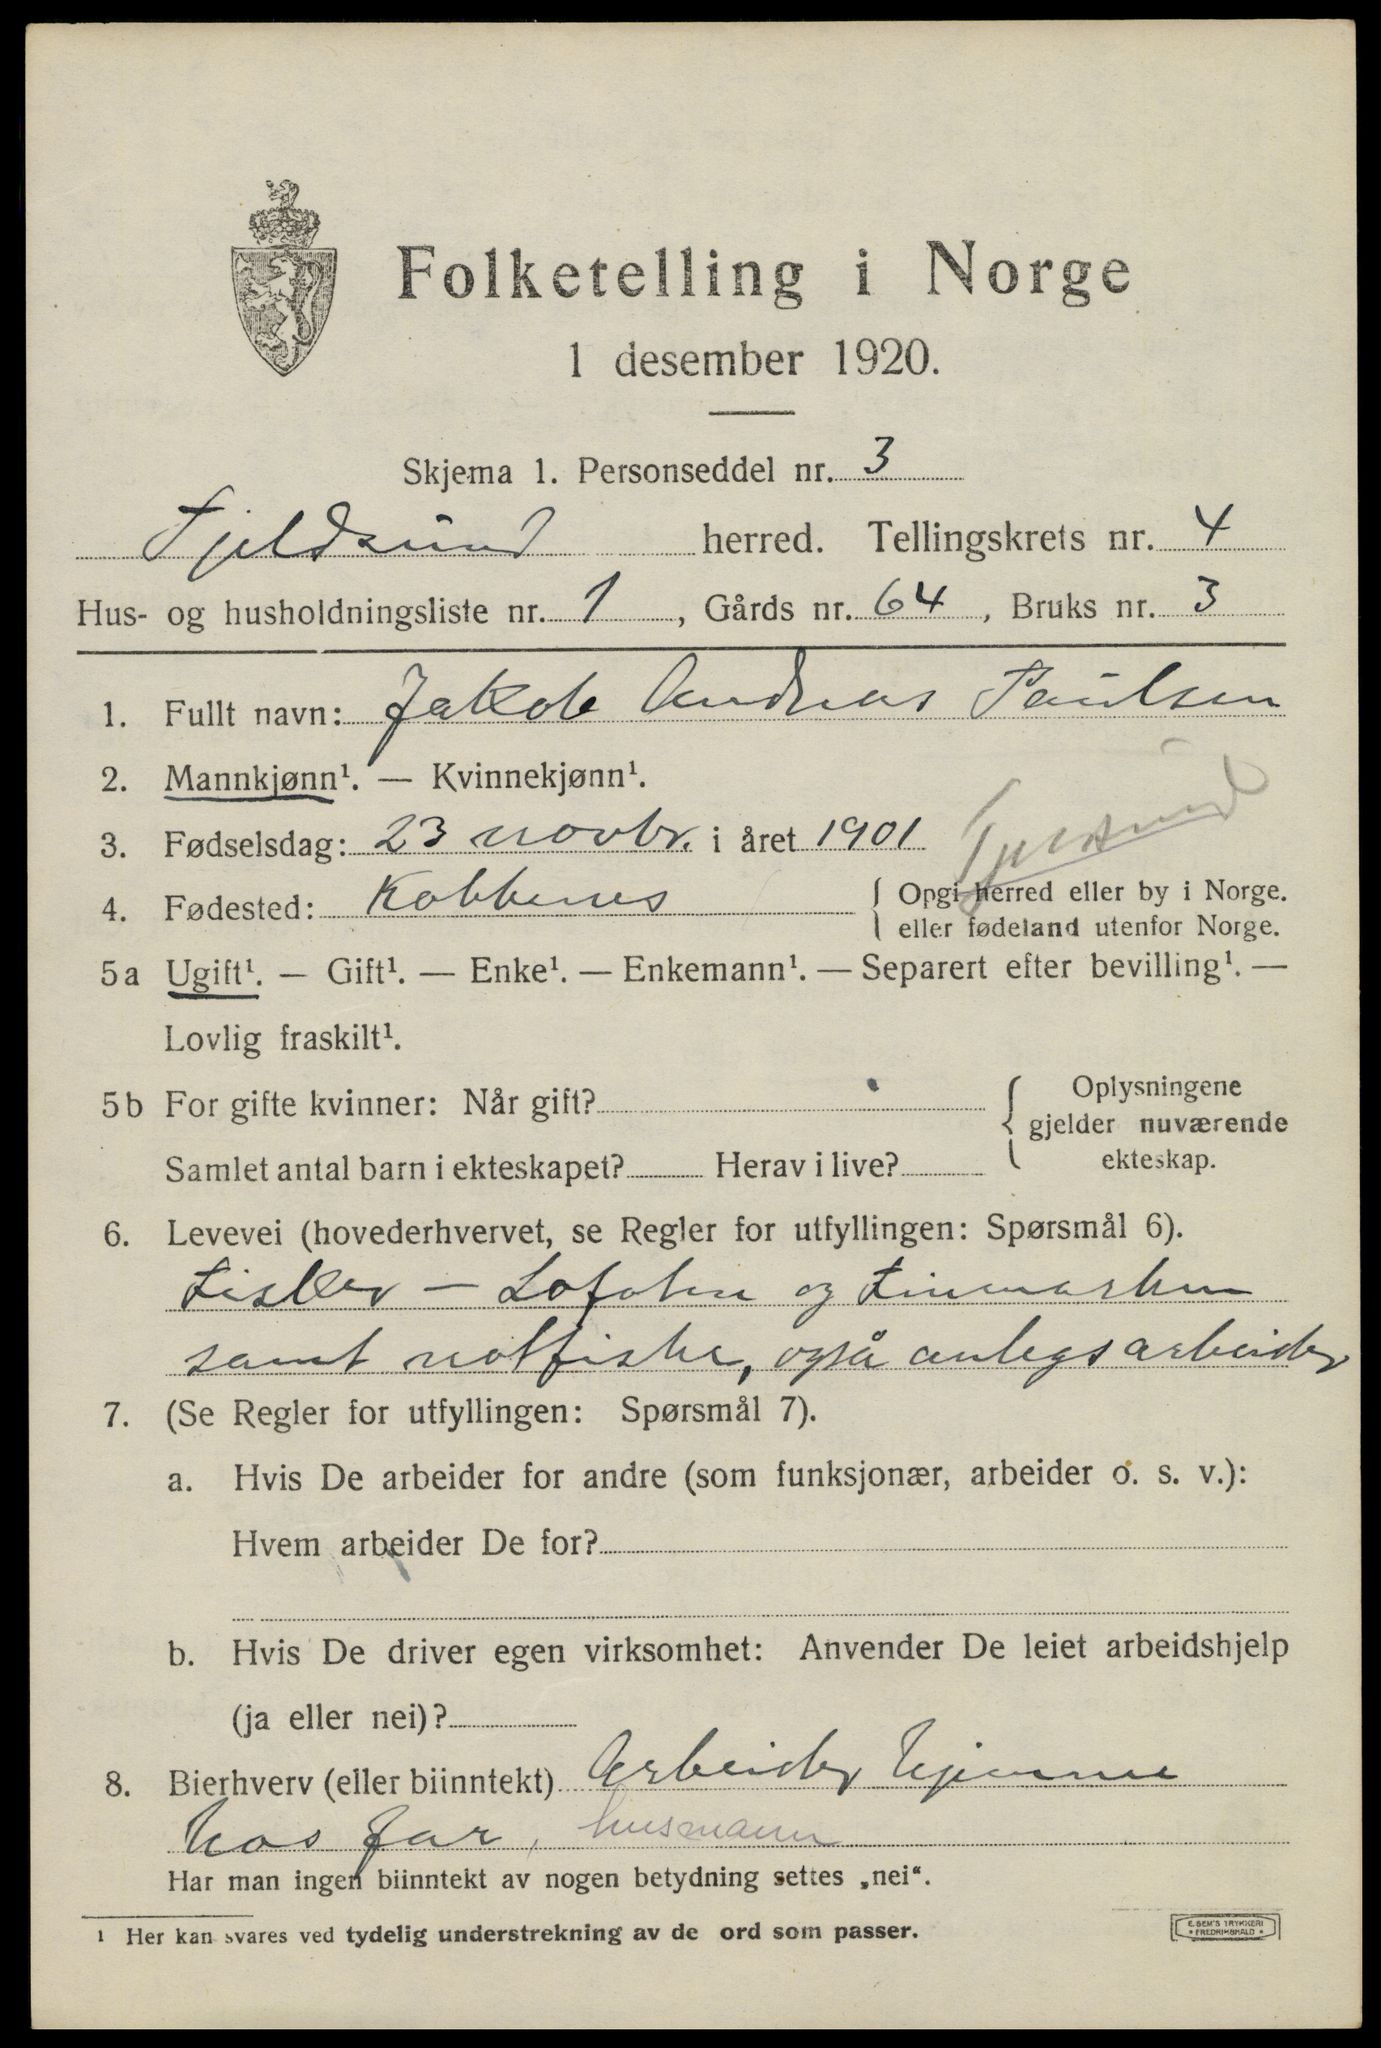 Folketelling i Norge
1 desember 1920.
Skjema 1. Personseddel nr. 3
Tjeldsund herred. Tellingskrets nr. 4
Hus- og husholdningsliste nr. 1, Gårds nr. 64, Bruks nr. 3
1. Fullt navn: Jakob Andreas Paulsen
2. Mannkjønn¹. — Kvinnekjønn¹.
Tjeldsund
3. Fødselsdag: 23 novbr. i året 1901
4. Fødested: Kobbenes { Opgi herred eller by i Norge.
eller fødeland utenfor Norge.
5a Ugift¹. — Gift¹. — Enke¹. — Enkemann¹. — Separert efter bevilling¹. —
Lovlig fraskilt¹.
5b For gifte kvinner: Når gift? { Oplysningene
gjelder nuværende
Samlet antal barn i ekteskapet? Herav i live? ekteskap.
6. Levevei (hovederhvervet, se Regler for utfyllingen: Spørsmål 6).
Fisker – Lofoten og Finmarken
samt notfiske, også anlegsarbeider
7. (Se Regler for utfyllingen: Spørsmål 7).
a. Hvis De arbeider for andre (som funksjonær, arbeider o. s. v.):
Hvem arbeider De for?
b. Hvis De driver egen virksomhet: Anvender De leiet arbeidshjelp
(ja eller nei)?
8. Bierhverv (eller biinntekt) Arbeider hjemme
hos far, husmann
Har man ingen biinntekt av nogen betydning settes „nei“.
1 Her kan svares ved tydelig understrekning av de ord som passer.
E. SEM'S TRYKKERI
* FREDRIKSHALD *